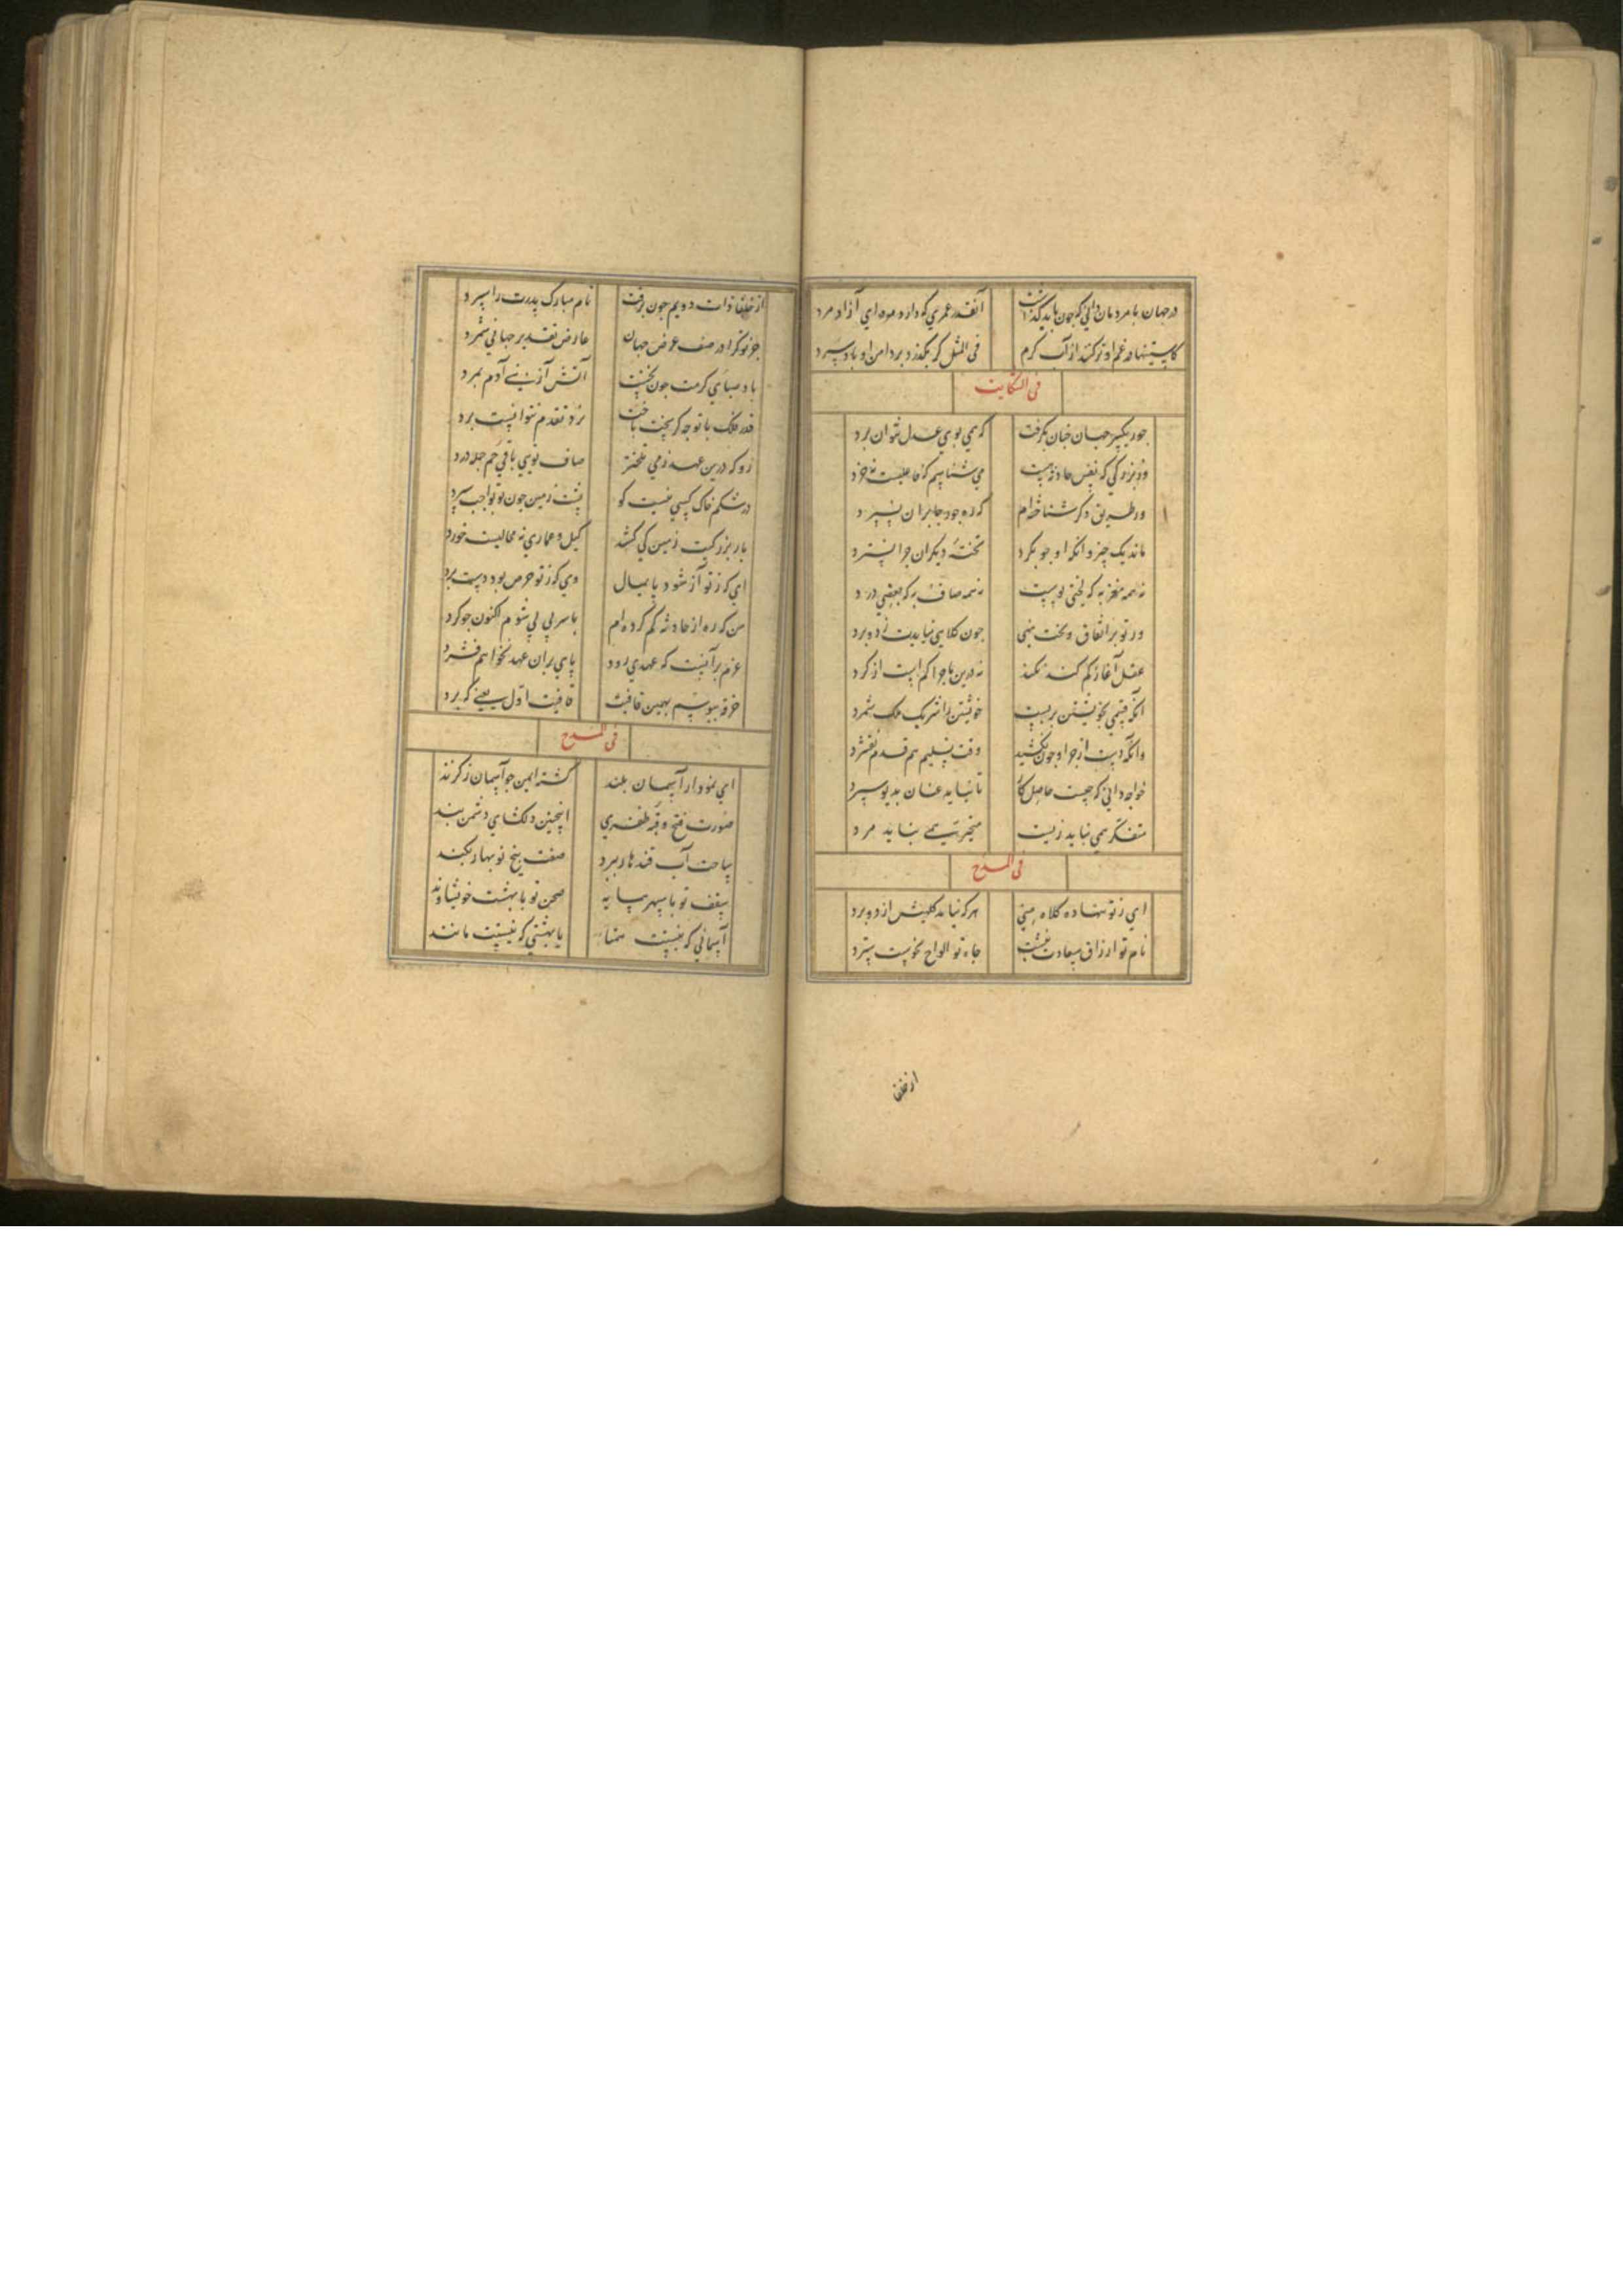 در جهان با مردمان دانی که چون باید گذاشت آنقدر عمری که دارد مرد ای آزاد مرد
کاستینها در غم او تر کنند از آب گرم فی المثل گر بگذرد بر دامن او باد سرد
فی الشکایت
جور یکسر جهان چنان بگرفت که همی بوی عدل نتوان برد
وز بزرگی که نفس حادثه راست می شناسیم کز ما خرد
ور طریق دگر شناخته ام که ره جور جابران نسپرد
ماند یک چیز و آنکه او چو بکرد تخته دیگران چرا نسترد
نه همه مغز به که لختی پوست نه همه صاف به که بعضی درد
ور تو بر اتفاق و بخت منی چون کلاهی نیایدت زد و برد
عقل آغاز کم کند نکند نه درین ماجرا کم است از کرد
آنکه قسمی بخویشتن بربست خویشتن را شریک ملک شمرد
وآنکه دست از چرا و چون بکشید وقت تسلیم هم قدم نفشرد
خواجه دانی که چیست حاصل کار تا نباید عنان بدیو سپرد
متفکر همی نباید زیست متحیر همی بباید مرد
فی المدح
ای ز تو بنهاده کلاه منی هر که نیاید کلهش از دو برد
نام تو ارزاق سعادت نبشت جاه تو الواح نحوست سترد
از خلفا
از خلفا ذات دویم چون برفت نام مبارک پدرت را سپرد
جز تو کرا در صف عرض جهان عارض تقدیر جهانی شمرد
باد صبای کرمت چون بجست آتش آز بنی آدم بمرد
قدر فلک با تو چه گر بخت باخت نرد تقدم نتوانست برد
زو که درین عهد ز می تلختر صاف تویی باقی خم جمله درد
در شکم خاک کسی نیست کو پشت زمین چون تو بواجب سپرد
بار بزرگیت زمین کی کشد کیل و عماری نه محالیست خورد
ای که ز تو آز شود پایمال وی که ز تو حرص بود دستبرد
من که ره از حادثه گم کرده ام با سر پی می شوم اکنون چو کرد
عزم بر آنست که عهدی رود پای بر آن عهد بخواهم فشرد
خرقه بپوشم بهمین قافیت قافیت اول یعنی که برد
فی المدح
ای نمودار آسمان بلند گشته ایمن چو آسمان ز گزند
صورت فتح و قبه ظفری اینچنین دلگشای دشمن بند
ساحت آب قندهار ببرد صفت بیخ نوبهار بکند
سقف تو با سپهر همسایه صحن تو با بهشت خویشاوند
آسمانی که نیستت همتا یا بهشتی که نیستت مانند